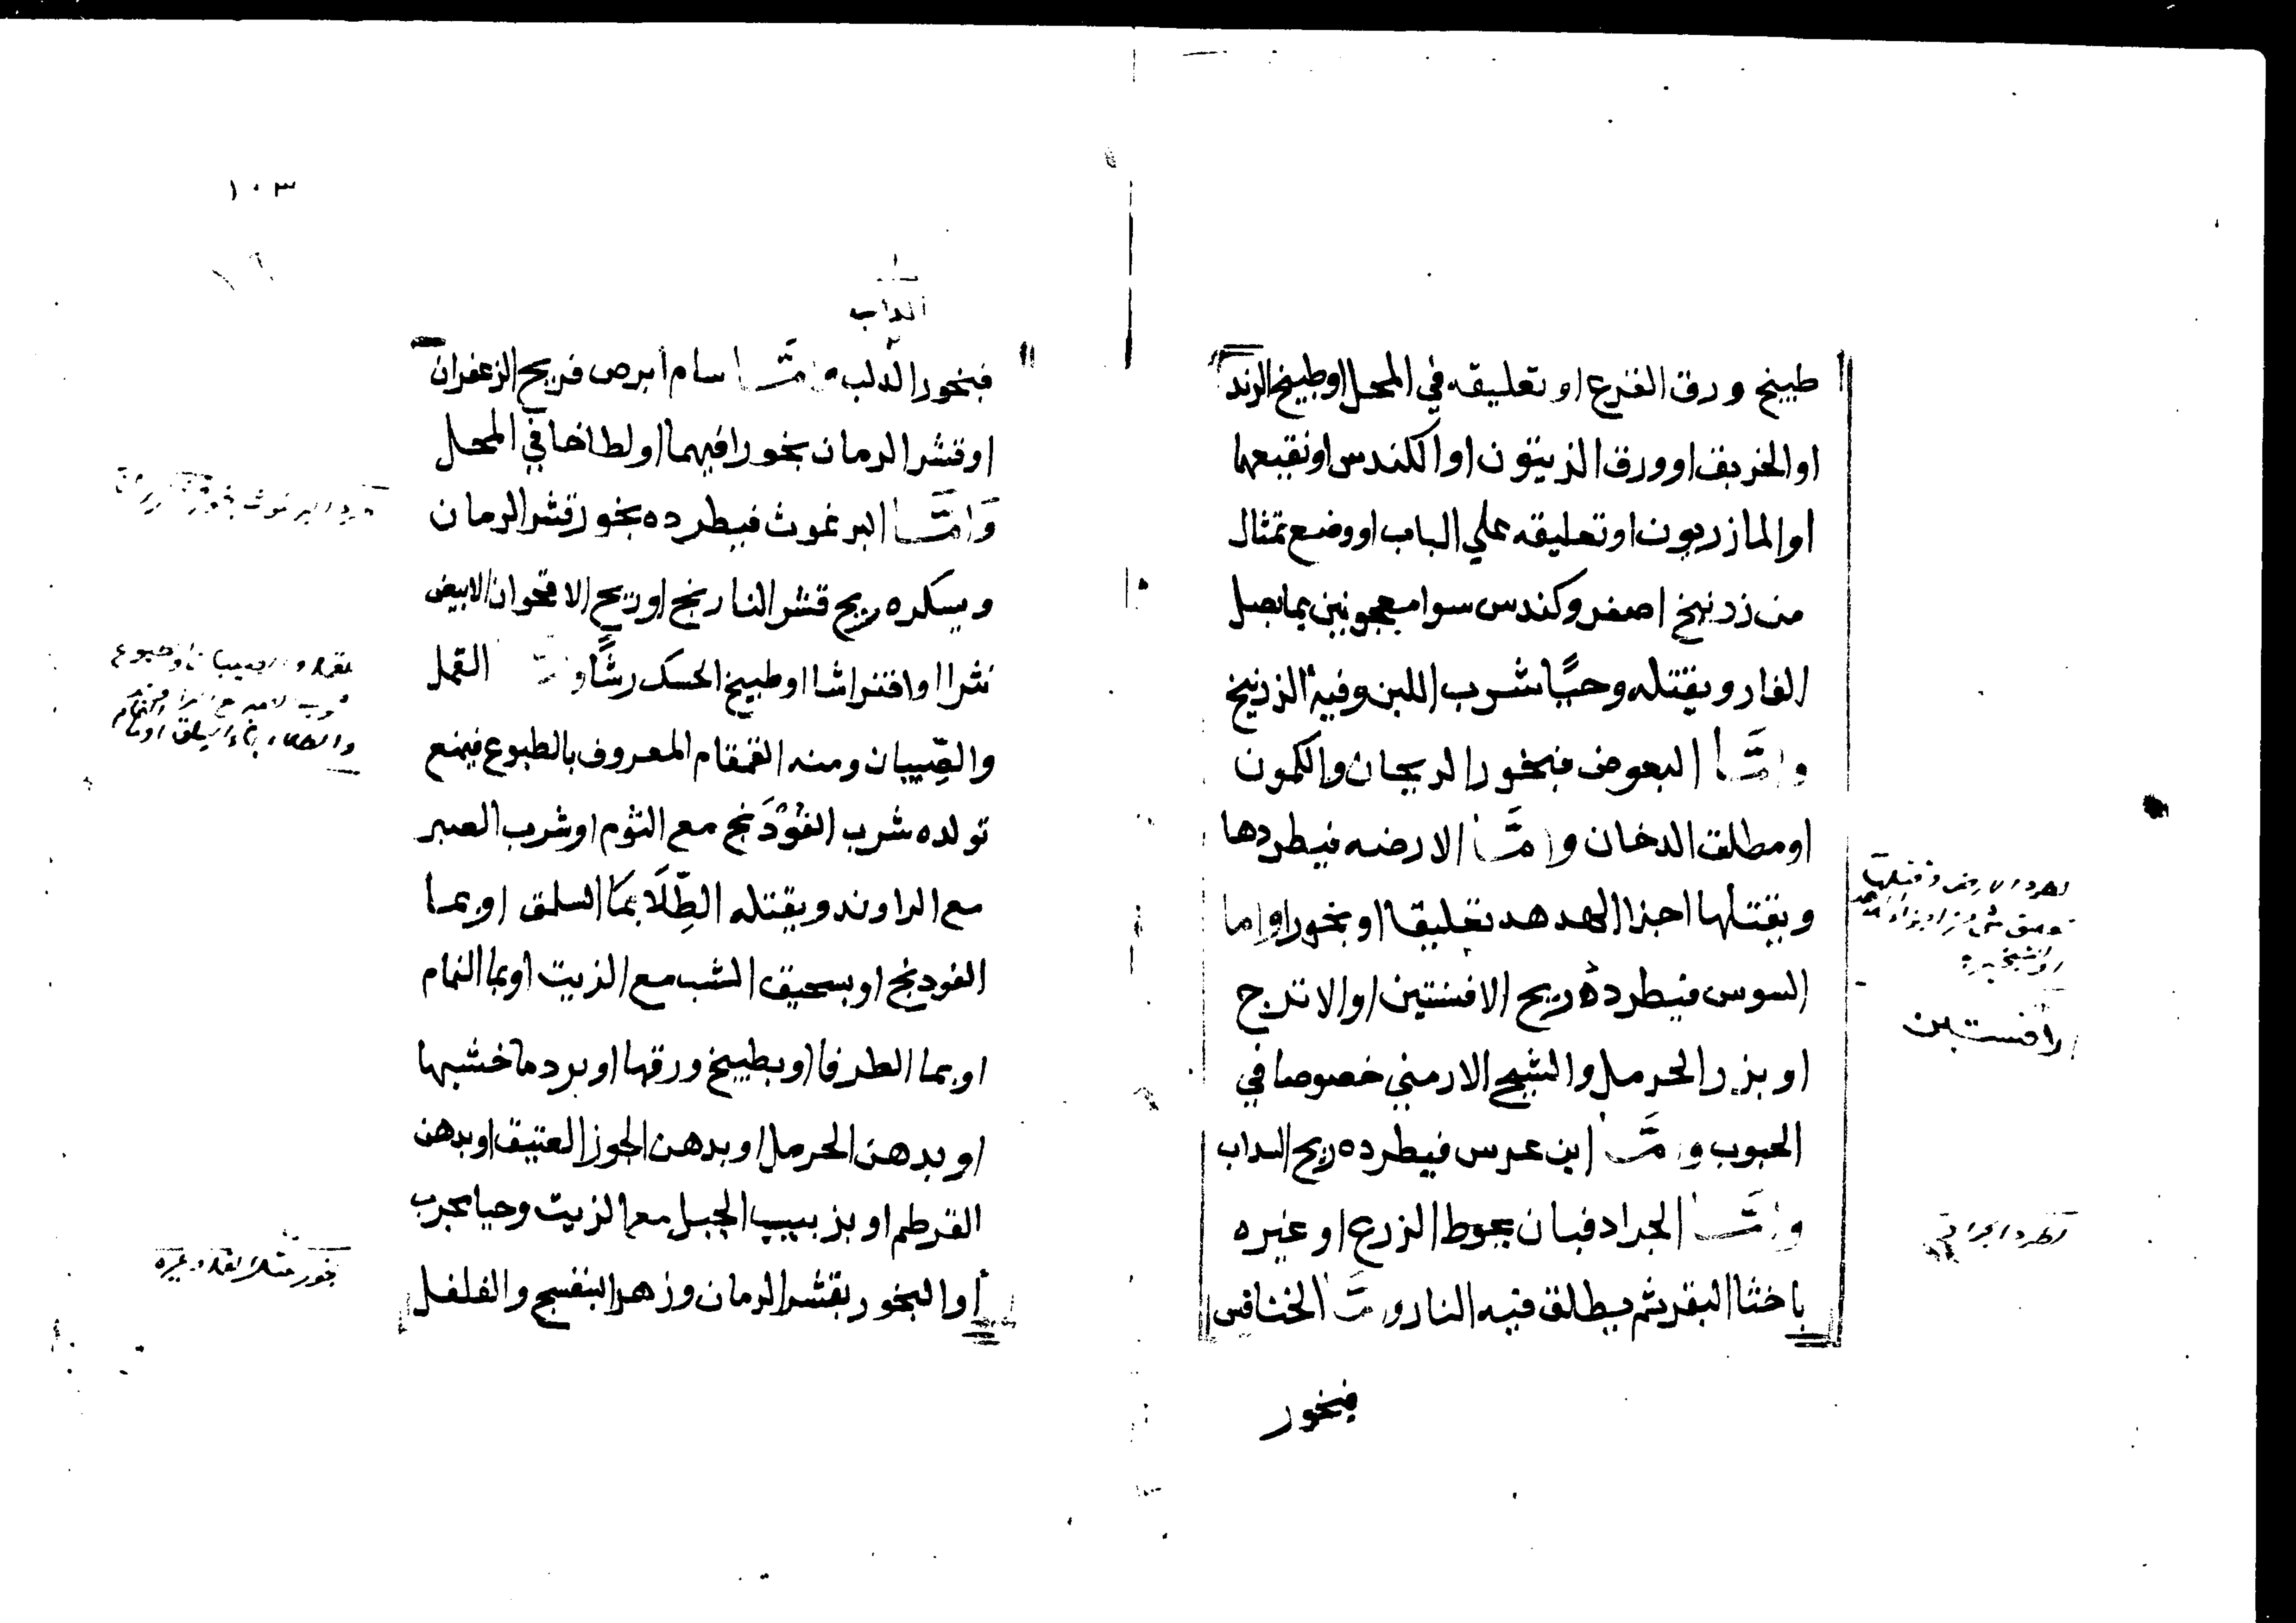 طبيخ ورق القرع او تعليقه في المحل او طبيخ الرند
او الخريق او ورق الزيتون او الكندس او نقيعها
او المازريون او تعليقه علي الباب او وضع تمثال
من زرنيخ اصفر وكندس سوا معجونين بما بصل
الفار ويقتله وحيًا شرب اللبن وفيه الزرنيخ
وامَّا البعوض فبخور الريحان والكمون
او مطلق الدخان وامَّا الارضه فيطردها
ويقتلها اجزا الهدهد تعليقا او بخورا واما
السوس فيطرده ريح الافسنتين او الاترج
او بزر الحرمل والشيح الارمني خصوصا في
الحبوب وامَّا ابن عرس فيطرده ريح السداب
وامَّا الجراد فبان يحوط الزرع او غيره
باخثا البقر ثم يطلق فيه النار وامَّا الخنافس
فبخور
افستين
لطرد الجراد
١٠٣
الداب
فبخور الدلب وامَّا سام ابرص فريح الزعفران
او قشر الرمان بخورا فيهما او لطاخا في المحل
وَامَّا البرغوث فيطرده بخور قشر الرمان
ويسكره ريح قشر النارنج او ريح الاقحوان الابيض
نثرا او افتراشا او طبيخ الحسك رشًّا وامَّا القمل
والصِّيبان ومنه القمقام المعروف بالطبوع فيمنع
تولده شرب الفُوْدَنج مع الثوم او شرب الصبر
مع الراوند ويقتله الطِّلَا بمَا السلق او بما
الفودنج او بسحيق الشب مع الزيت او بما النمام
او بما الطرفا او بطبيخ ورقها او برماد خشبها
او بدهن الحرمل او بدهن الجوز العتيق او بدهن
القرطم او بزبيب الجبل مع الزيت وحيا مجرب
أو البخور بقشر الرمان وزهر البنفسج والفلفل
بخور لقتل القمل وغيره